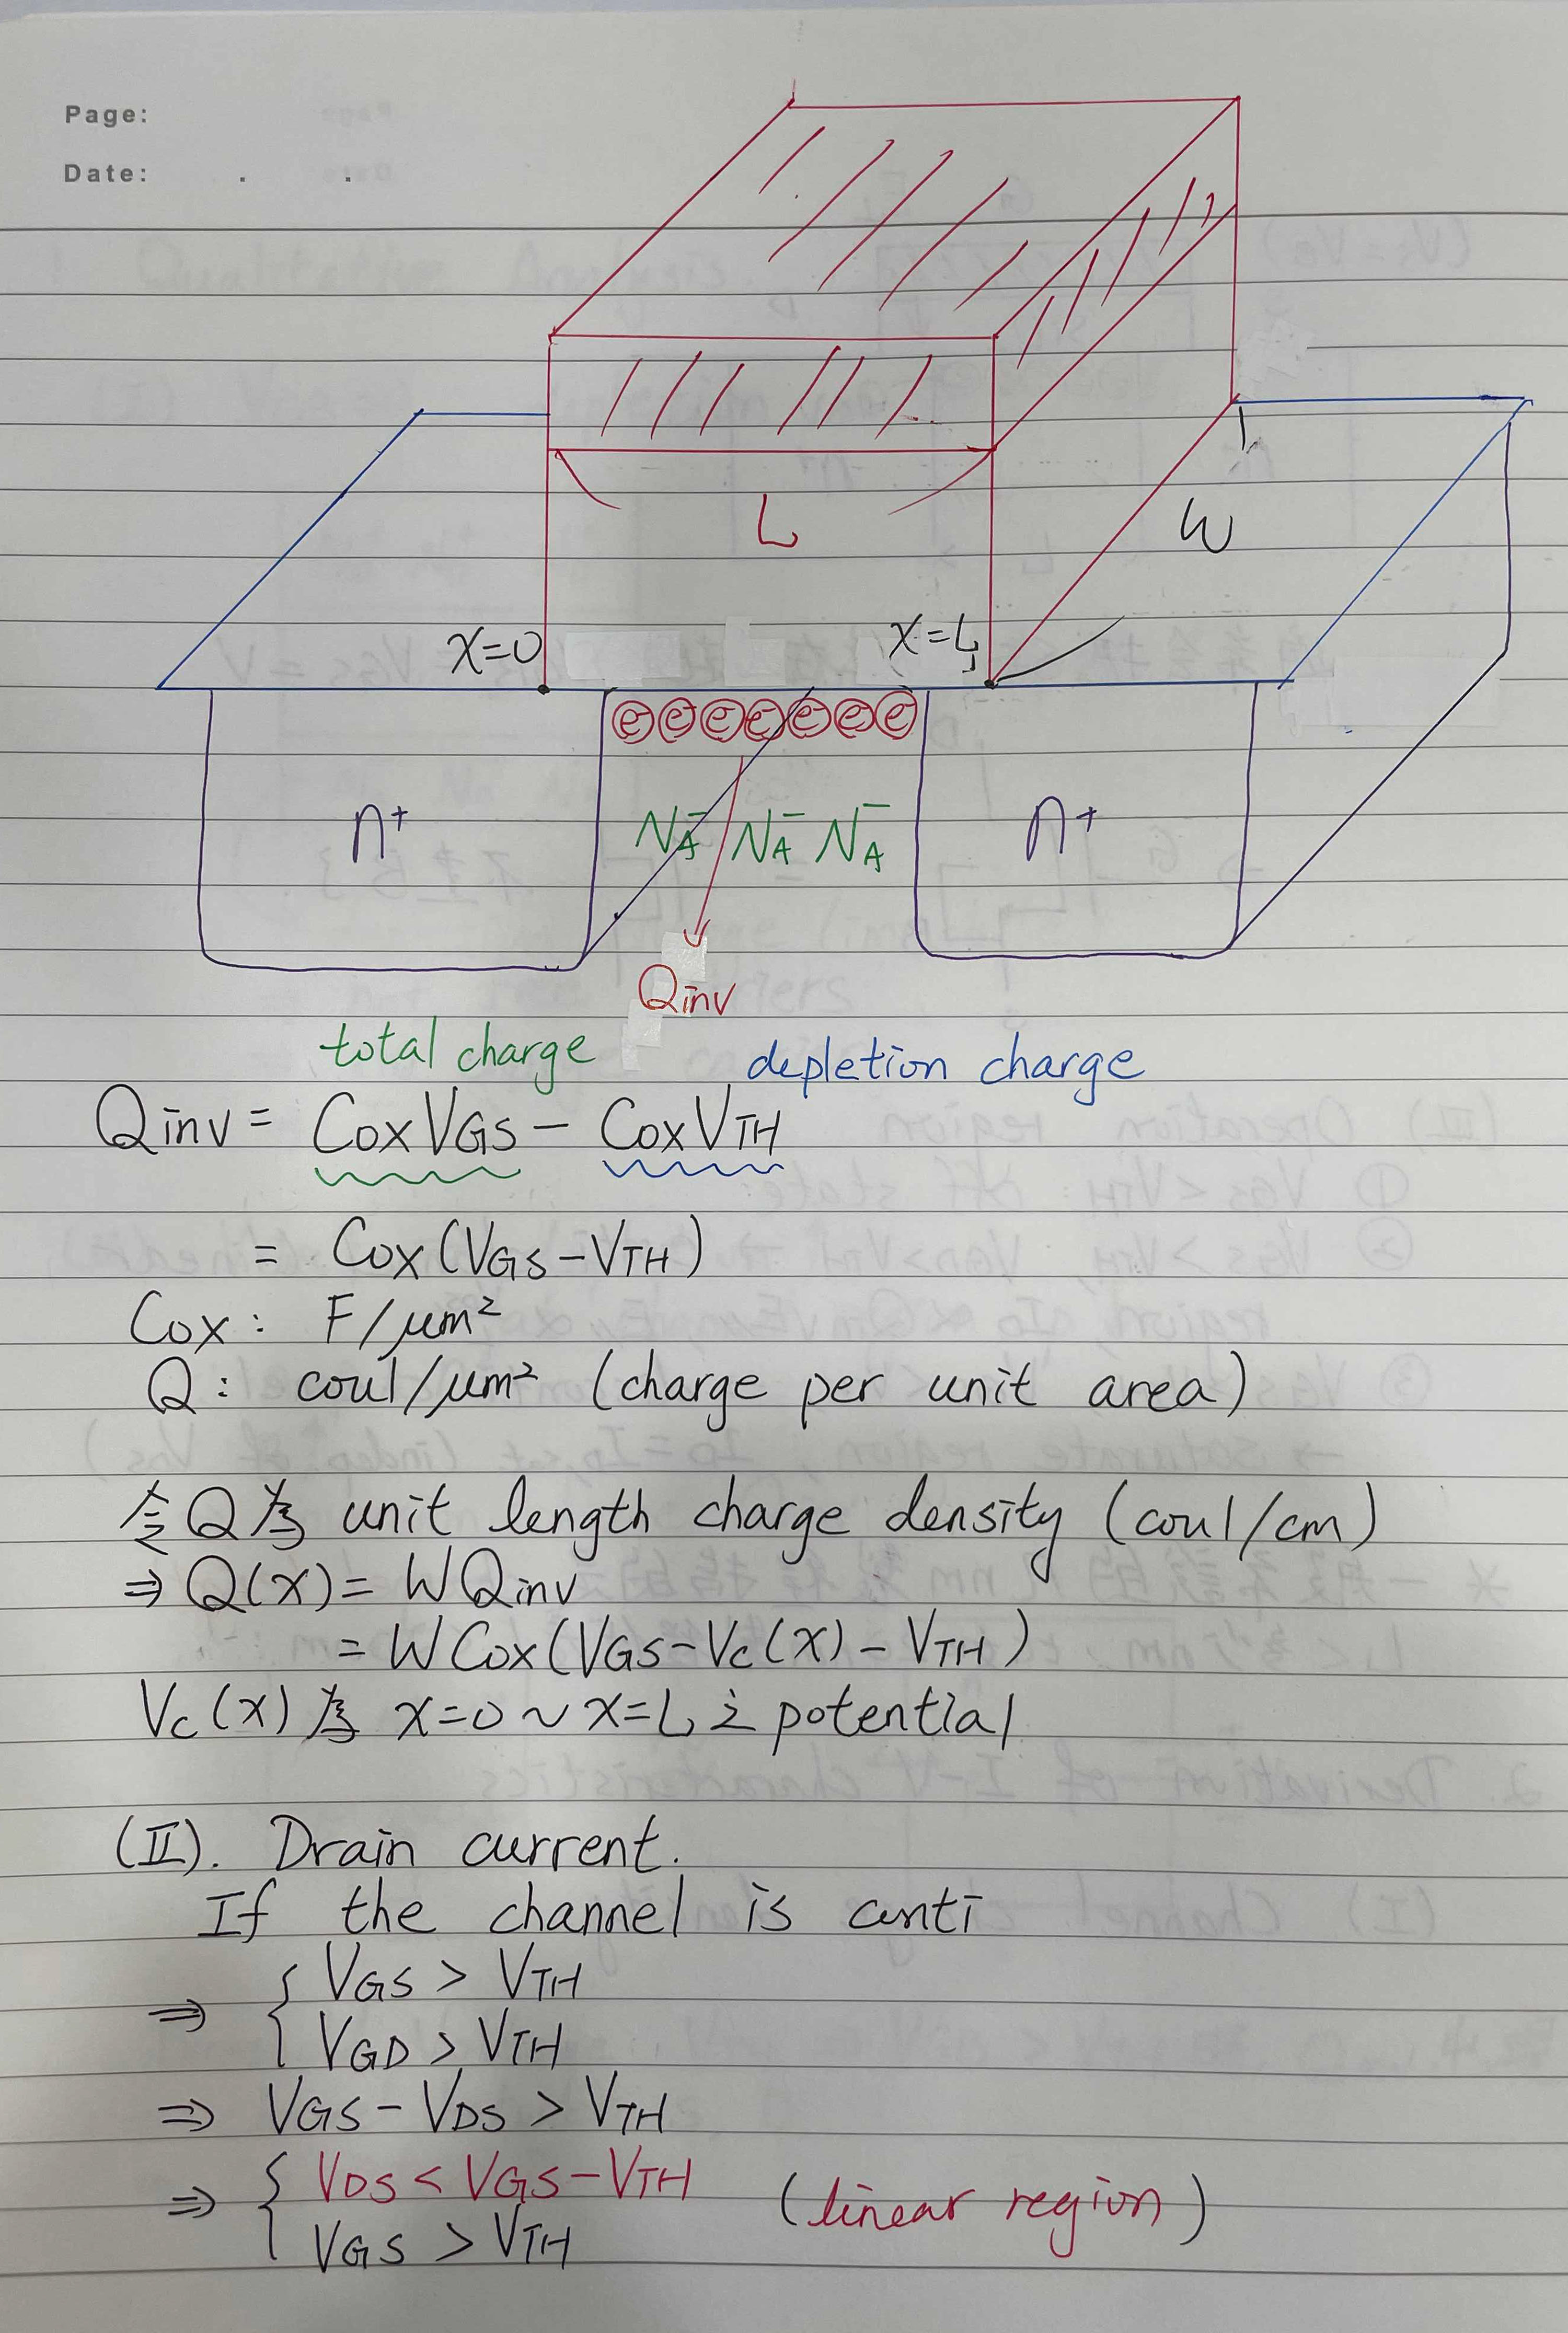 Page:
Date: . .
L
W
x=0 x=L
e e e e e e e
n⁺ N_A⁻ N_A⁻ N_A⁻ n⁺
Qinv
total charge depletion charge
Qinv = CoxVGS - CoxVTH
= Cox(VGS-VTH)
Cox: F/μm²
Q: coul/μm² (charge per unit area)
令Q為 unit length charge density (coul/cm)
⇒ Q(x) = WQinv
= WCox(VGS-Vc(x)-VTH)
Vc(x)為 x=0~x=L之potential
(II). Drain current.
If the channel is conti
⇒ { VGS > VTH
VGD > VTH
⇒ VGS - VDS > VTH
⇒ { VDS < VGS-VTH (linear region)
VGS > VTH